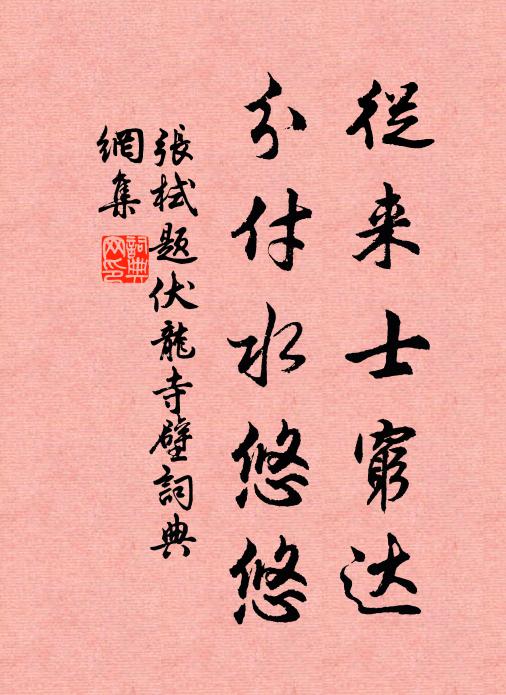 從来士窮达
分付水悠悠
張栻题伏龍寺壁詞典
網集
詞典
网印